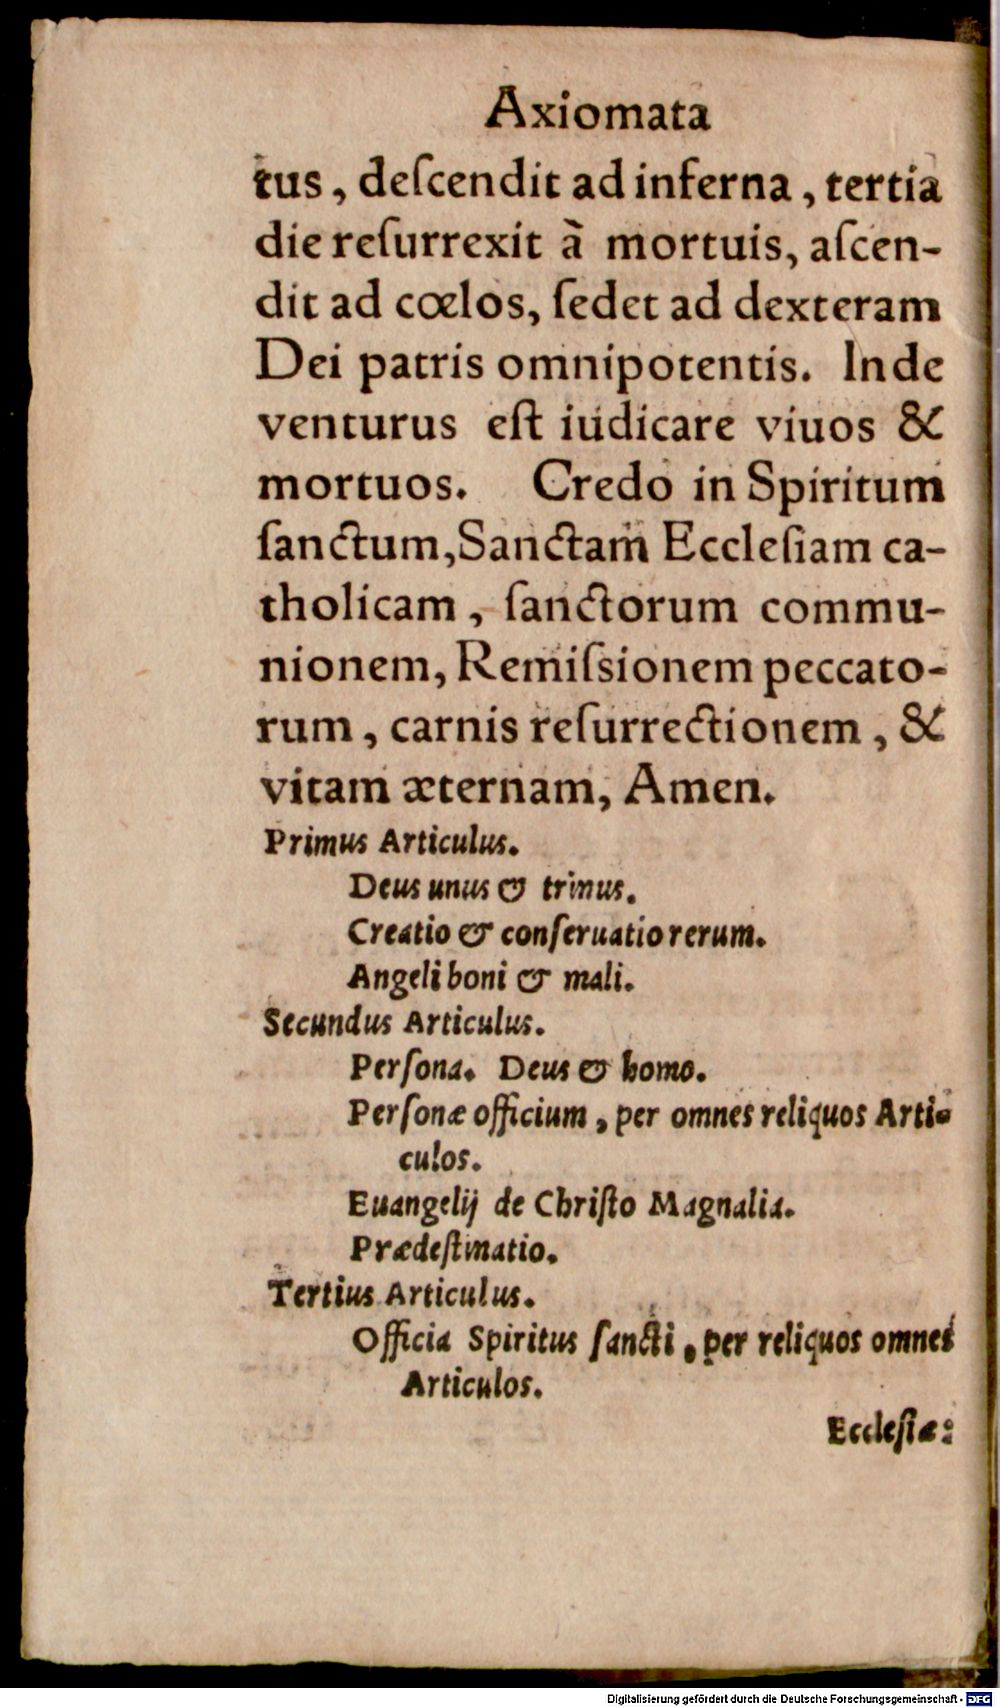 Axiomata
tus, deſcendit ad inferna, tertia
die reſurrexit à mortuis, aſcen-
dit ad cœlos, ſedet ad dexteram
Dei patris omnipotentis. Inde
venturus eſt iudicare viuos &
mortuos. Credo in Spiritum
ſanctum, Sanctam Eccleſiam ca-
tholicam, ſanctorum commu-
nionem, Remiſsionem peccato-
rum, carnis reſurrectionem, &
vitam æternam, Amen.
Primus Articulus.
Deus unus & trinus.
Creatio & conſeruatio rerum.
Angeli boni & mali.
Secundus Articulus.
Perſona. Deus & homo.
Perſonæ officium, per omnes reliquos Arti-
culos.
Euangelij de Chriſto Magnalia.
Prædeſtinatio.
Tertius Articulus.
Officia Spiritus ſancti, per reliquos omnes
Articulos.
Eccleſiæ:
Digitalisierung gefördert durch die Deutsche Forschungsgemeinschaft - DFG